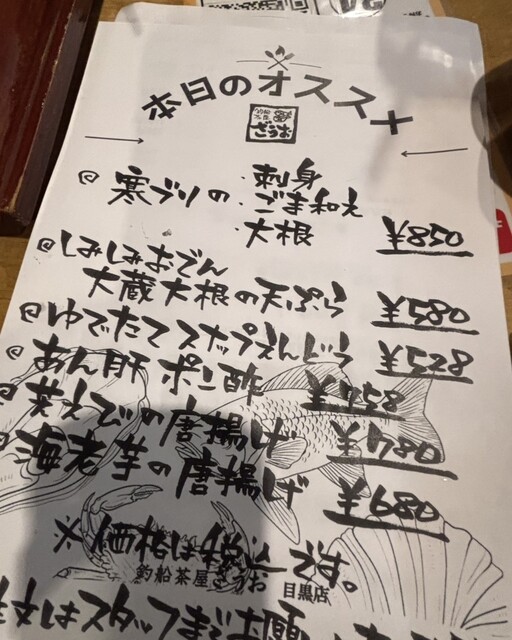 本日のオススメ
ざうお
@ 寒ブリの ・刺身
・ごま和え
・大根 ¥850
@ しみしみおでん
大蔵大根の天ぷら ¥580
@ ゆでたてスナップえんどう ¥528
@ あん肝ポン酢 ¥758
@ 芝えびの唐揚げ ¥780
@ 海老芋の唐揚げ ¥680
※価格は税込です。
釣船茶屋ざうお 目黒店
注文はスタッフまでお願